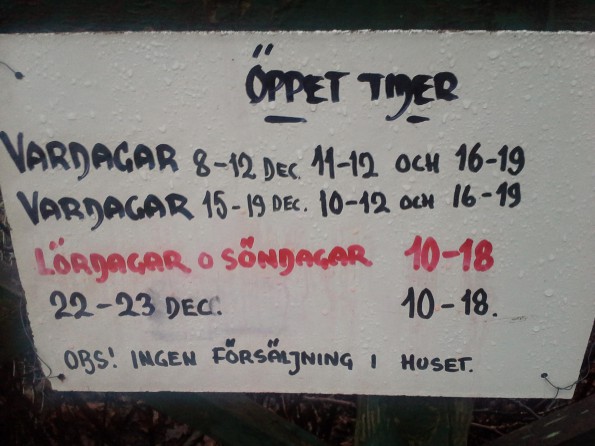 ÖPPET TIDER
VARDAGAR 8-12 DEC. 11-12 OCH 16-19
VARDAGAR 15-19 DEC. 10-12 OCH 16-19
LÖRDAGAR O SÖNDAGAR 10-18
22-23 DEC. 10-18.
OBS! INGEN FÖRSÄLJNING I HUSET.